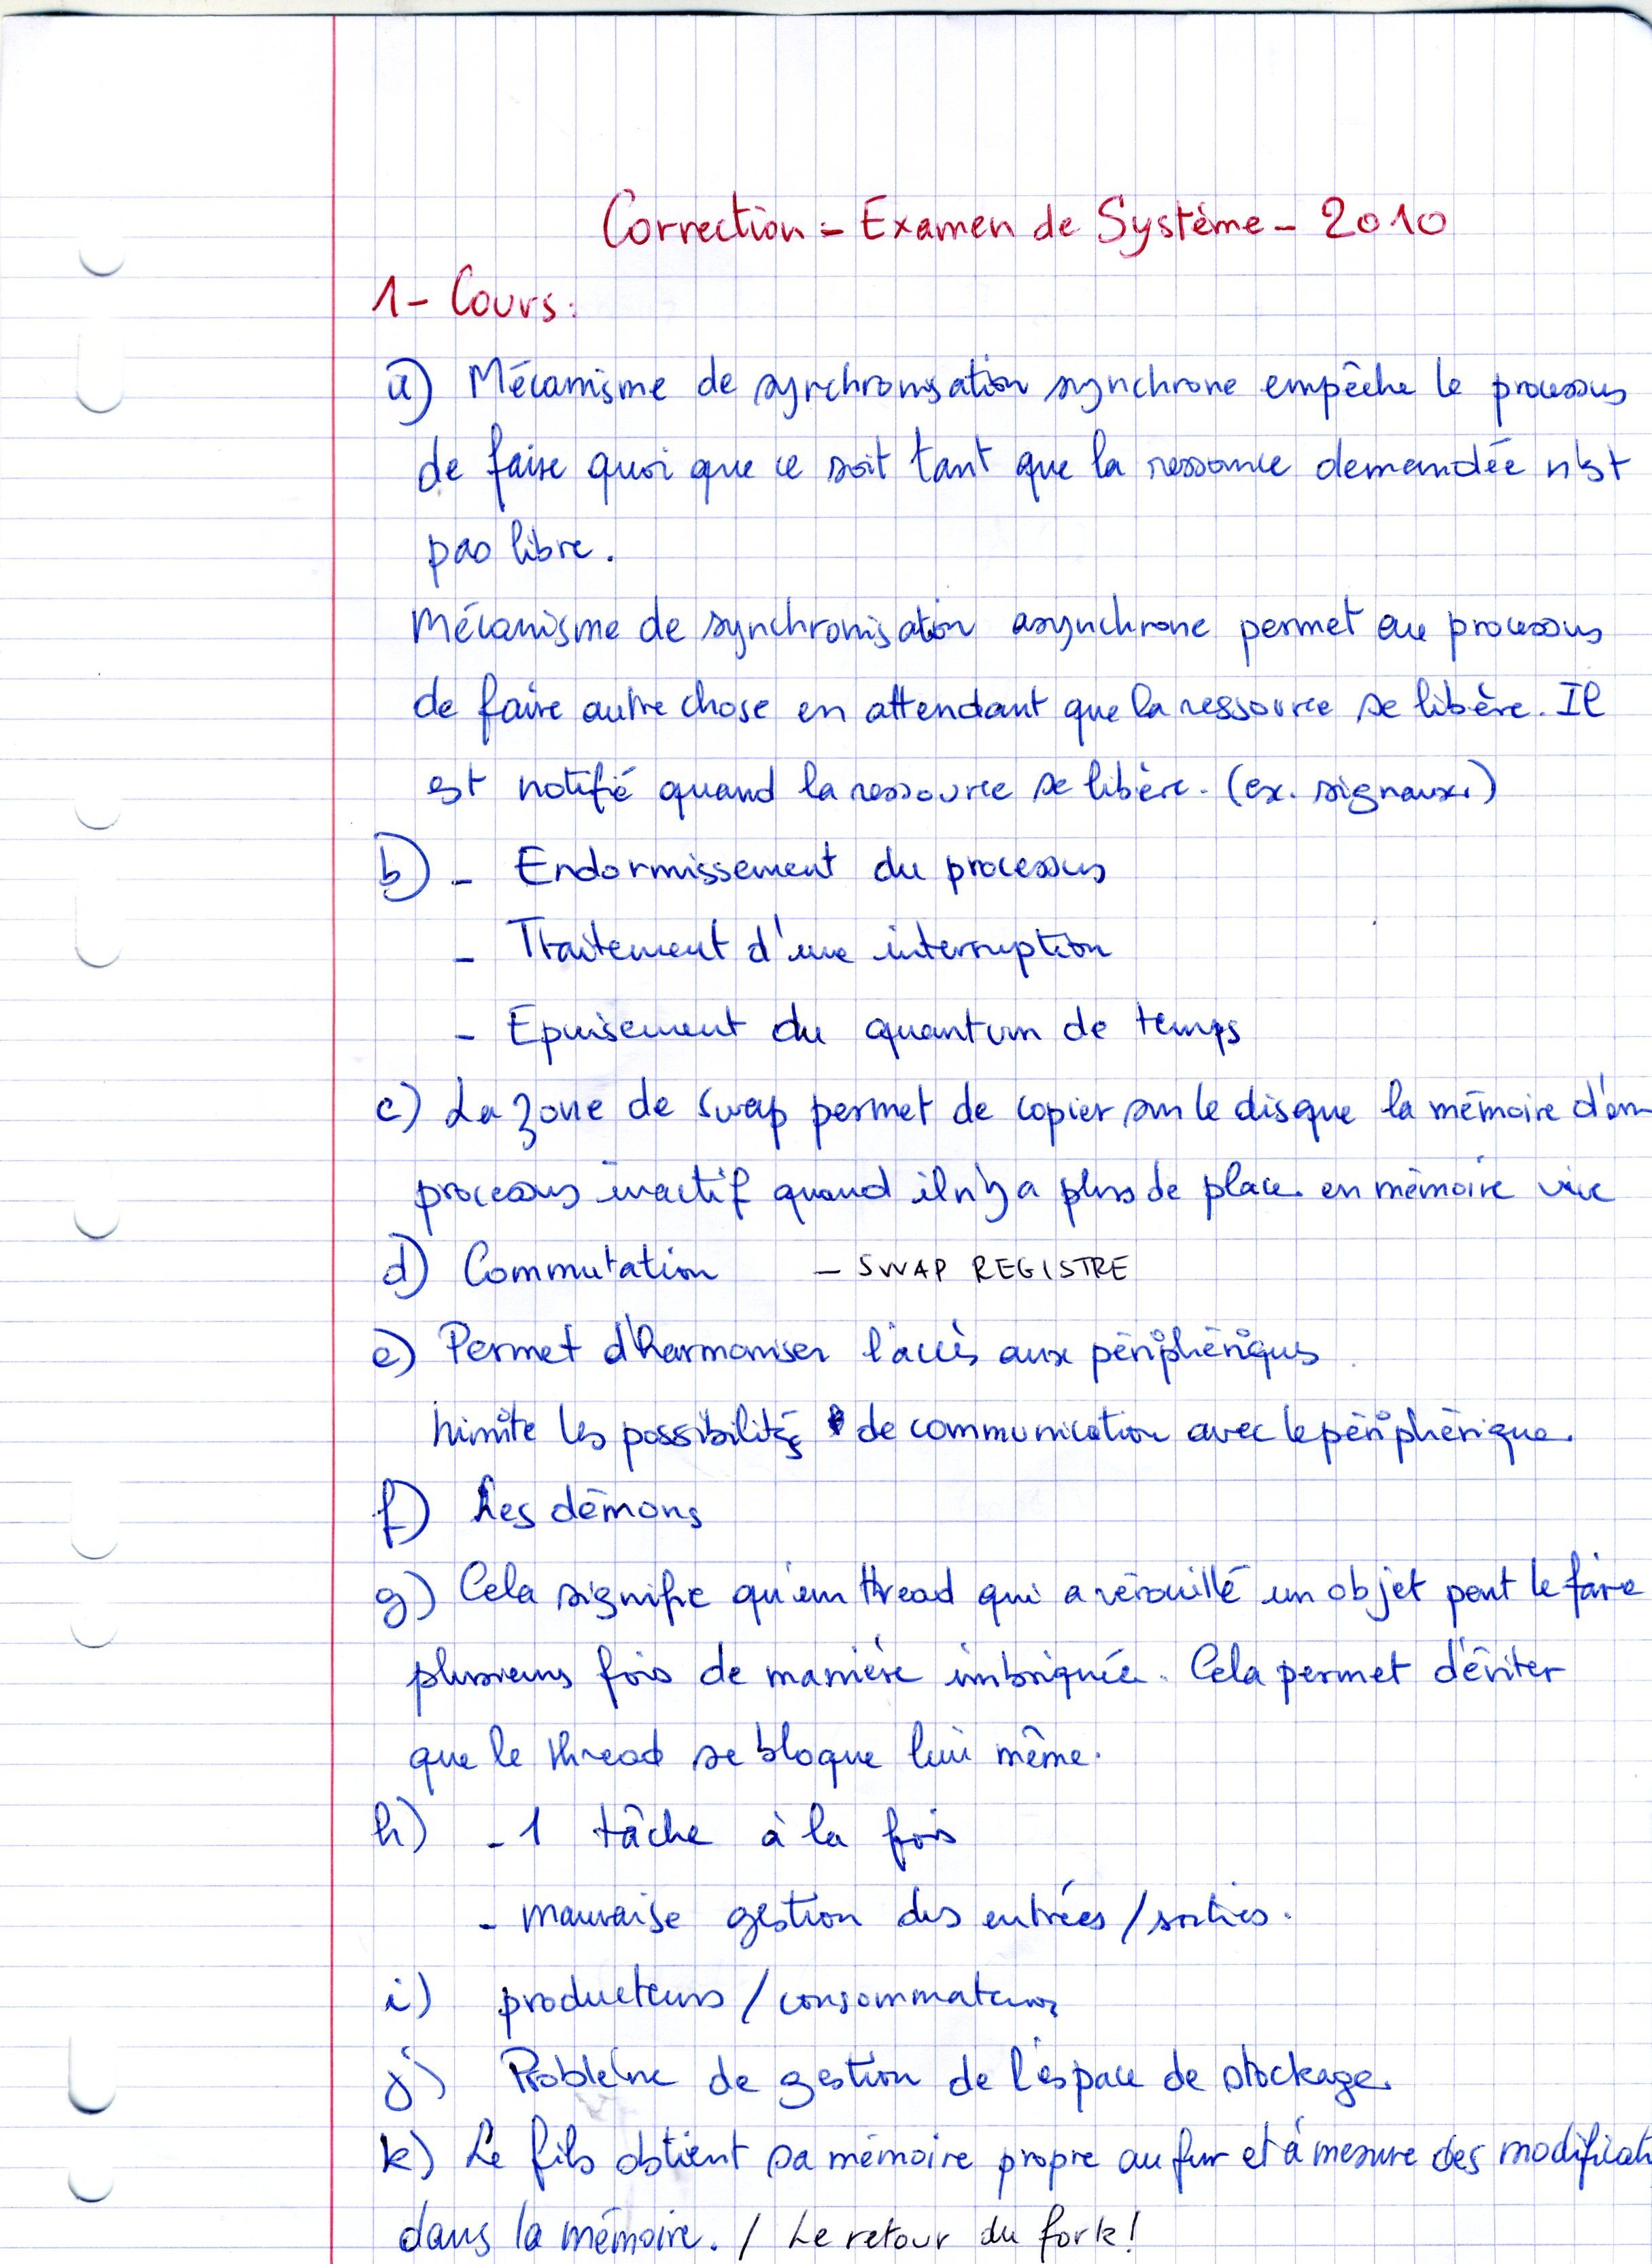 Correction - Examen de Système - 2010
1- Cours:
a) Mécanisme de synchronisation synchrone empêche le processus
de faire quoi que ce soit tant que la ressource demandée n'est
pas libre.
Mécanisme de synchronisation asynchrone permet au processus
de faire autre chose en attendant que la ressource se libère. Il
est notifié quand la ressource se libère. (ex. signaux.)
b) - Endormissement du processus
- Traitement d'une interruption
- Epuisement du quantum de temps
c) La zone de swap permet de copier sur le disque la mémoire d'un
processus inactif quand il n'y a plus de place en mémoire vive
d) Commutation - SWAP REGISTRE
e) Permet d'harmoniser l'accès aux périphériques
Limite les possibilités de communication avec le périphérique.
f) Les démons
g) Cela signifie qu'un thread qui a vérouillé un objet peut le faire
plusieurs fois de manière imbriquée. Cela permet d'éviter
que le thread se bloque lui même.
h) - 1 tâche à la fois
- mauvaise gestion des entrées / sorties.
i) producteurs / consommateurs
j) Problème de gestion de l'espace de stockage.
k) Le fils obtient sa mémoire propre au fur et à mesure des modificati
dans la mémoire. / Le retour du fork!